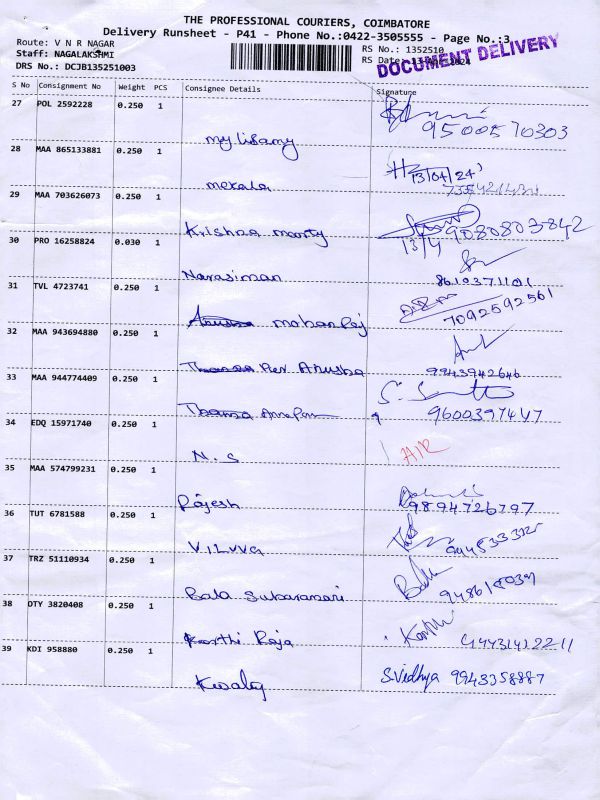 THE PROFESSIONAL COURIERS, COIMBATORE
Delivery Runsheet - P41 - Phone No.:0422-3505555 - Page No.:3
Route: V N R NAGAR
RS No.: 1352510
Staff: NAGALAKSHMI
RS Date:
DOCUMENT DELIVERY
DRS No.: DCJB135251003
S No Consignment No Weight PCS Consignee Details Signature
27 POL 2592228 0.250 1
9500570303
28 MAA 865133881 0.250 1
13/04/24
mekala
29 MAA 703626073 0.250 1
Krishna 13/4 9080803842
30 PRO 16258824 0.030 1
Narasiman
31 TVL 4723741 0.250 1
7092592561
mohanRaj
32 MAA 943694880 0.250 1
Anusha 9943942646
33 MAA 944774409 0.250 1
9600397447
34 EDQ 15971740 0.250 1
N.S AIR
35 MAA 574799231 0.250 1
Rajesh 9894726797
36 TUT 6781588 0.250 1
37 TRZ 51110934 0.250 1
Bala
38 DTY 3820408 0.250 1
Karthi Raja
39 KDI 958880 0.250 1
S.Vidhya 9943358887